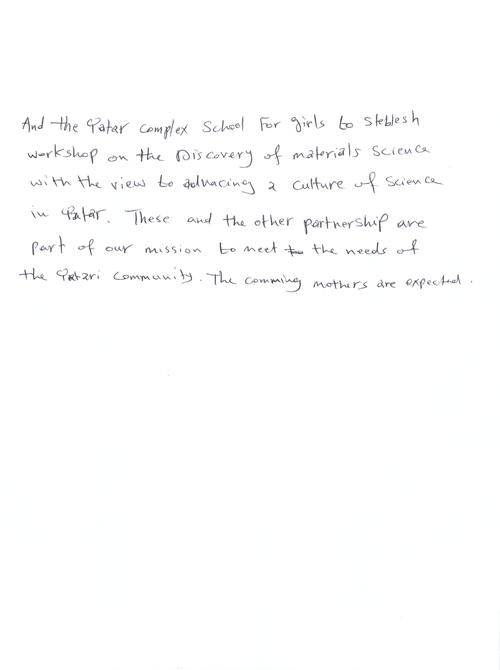 And the Qatar complex School For girls to steblesh
workshop on the Discovery of materials Science
with the view to advacing a culture of Science
in Qatar. These and the other partnership are
part of our mission to meet the needs of
the Qatari community. The comming mothers are expected.